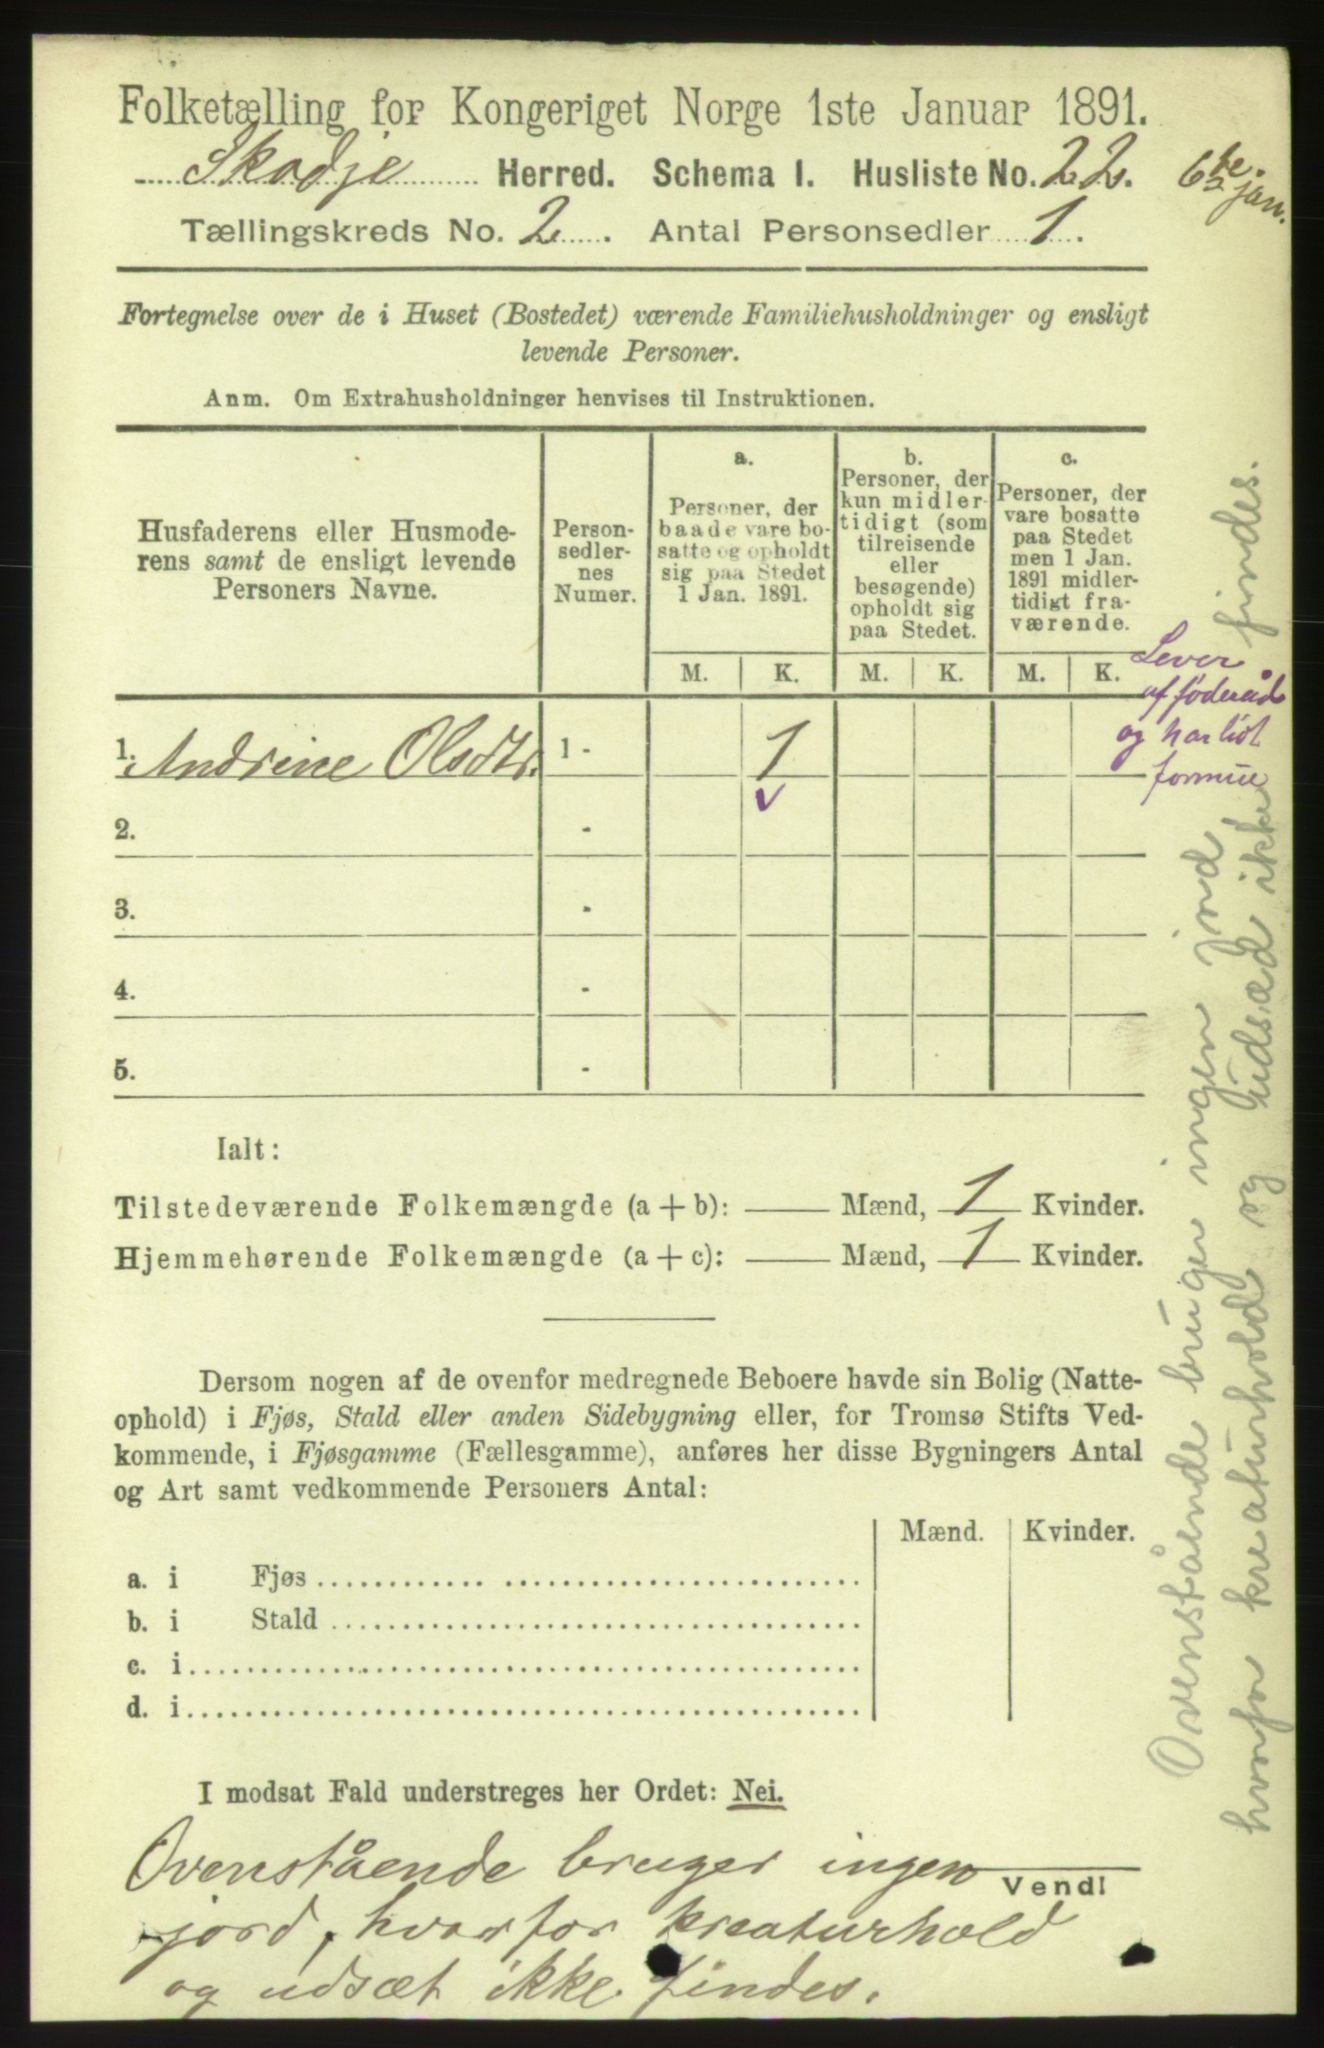 Folketælling for Kongeriget Norge 1ste Januar 1891.
Skodje Herred. Schema I. Husliste No. 22.
6te jan.
Tællingskreds No. 2. Antal Personsedler 1.
Fortegnelse over de i Huset (Bostedet) værende Familiehusholdninger og ensligt
levende Personer.
Anm. Om Extrahusholdninger henvises til Instruktionen.
Husfaderens eller Husmode-
rens samt de ensligt levende
Personers Navne.
Person-
sedler-
nes
Numer.
a.
Personer, der
baade vare bo-
satte og opholdt
sig paa Stedet
1 Jan. 1891.
b.
Personer, der
kun midler-
tidigt (som
tilreisende
eller
besøgende)
opholdt sig
paa Stedet.
c.
Personer, der
vare bosatte
paa Stedet
men 1 Jan.
1891 midler-
tidigt fra-
værende.
M. K. M. K. M. K.
Lever
af føderåd
og har lidt
formue
1. Andrine Olsdtr. 1 - 1
2. -
3. -
4. -
5. -
Ialt:
Tilstedeværende Folkemængde (a + b): Mænd, 1 Kvinder.
Hjemmehørende Folkemængde (a + c): Mænd, 1 Kvinder.
Dersom nogen af de ovenfor medregnede Beboere havde sin Bolig (Natte-
ophold) i Fjøs, Stald eller anden Sidebygning eller, for Tromsø Stifts Ved-
kommende, i Fjøsgamme (Fællesgamme), anføres her disse Bygningers Antal
og Art samt vedkommende Personers Antal:
Mænd. Kvinder.
a. i Fjøs
b. i Stald
c. i
d. i
I modsat Fald understreges her Ordet: Nei.
Vend!
Ovenstående bruger ingen
jord, hvorfor kreaturhold
og udsæt ikke findes.
Ovenstående bruger ingen jord
hvorfor kreaturhold og udsæd ikke findes.